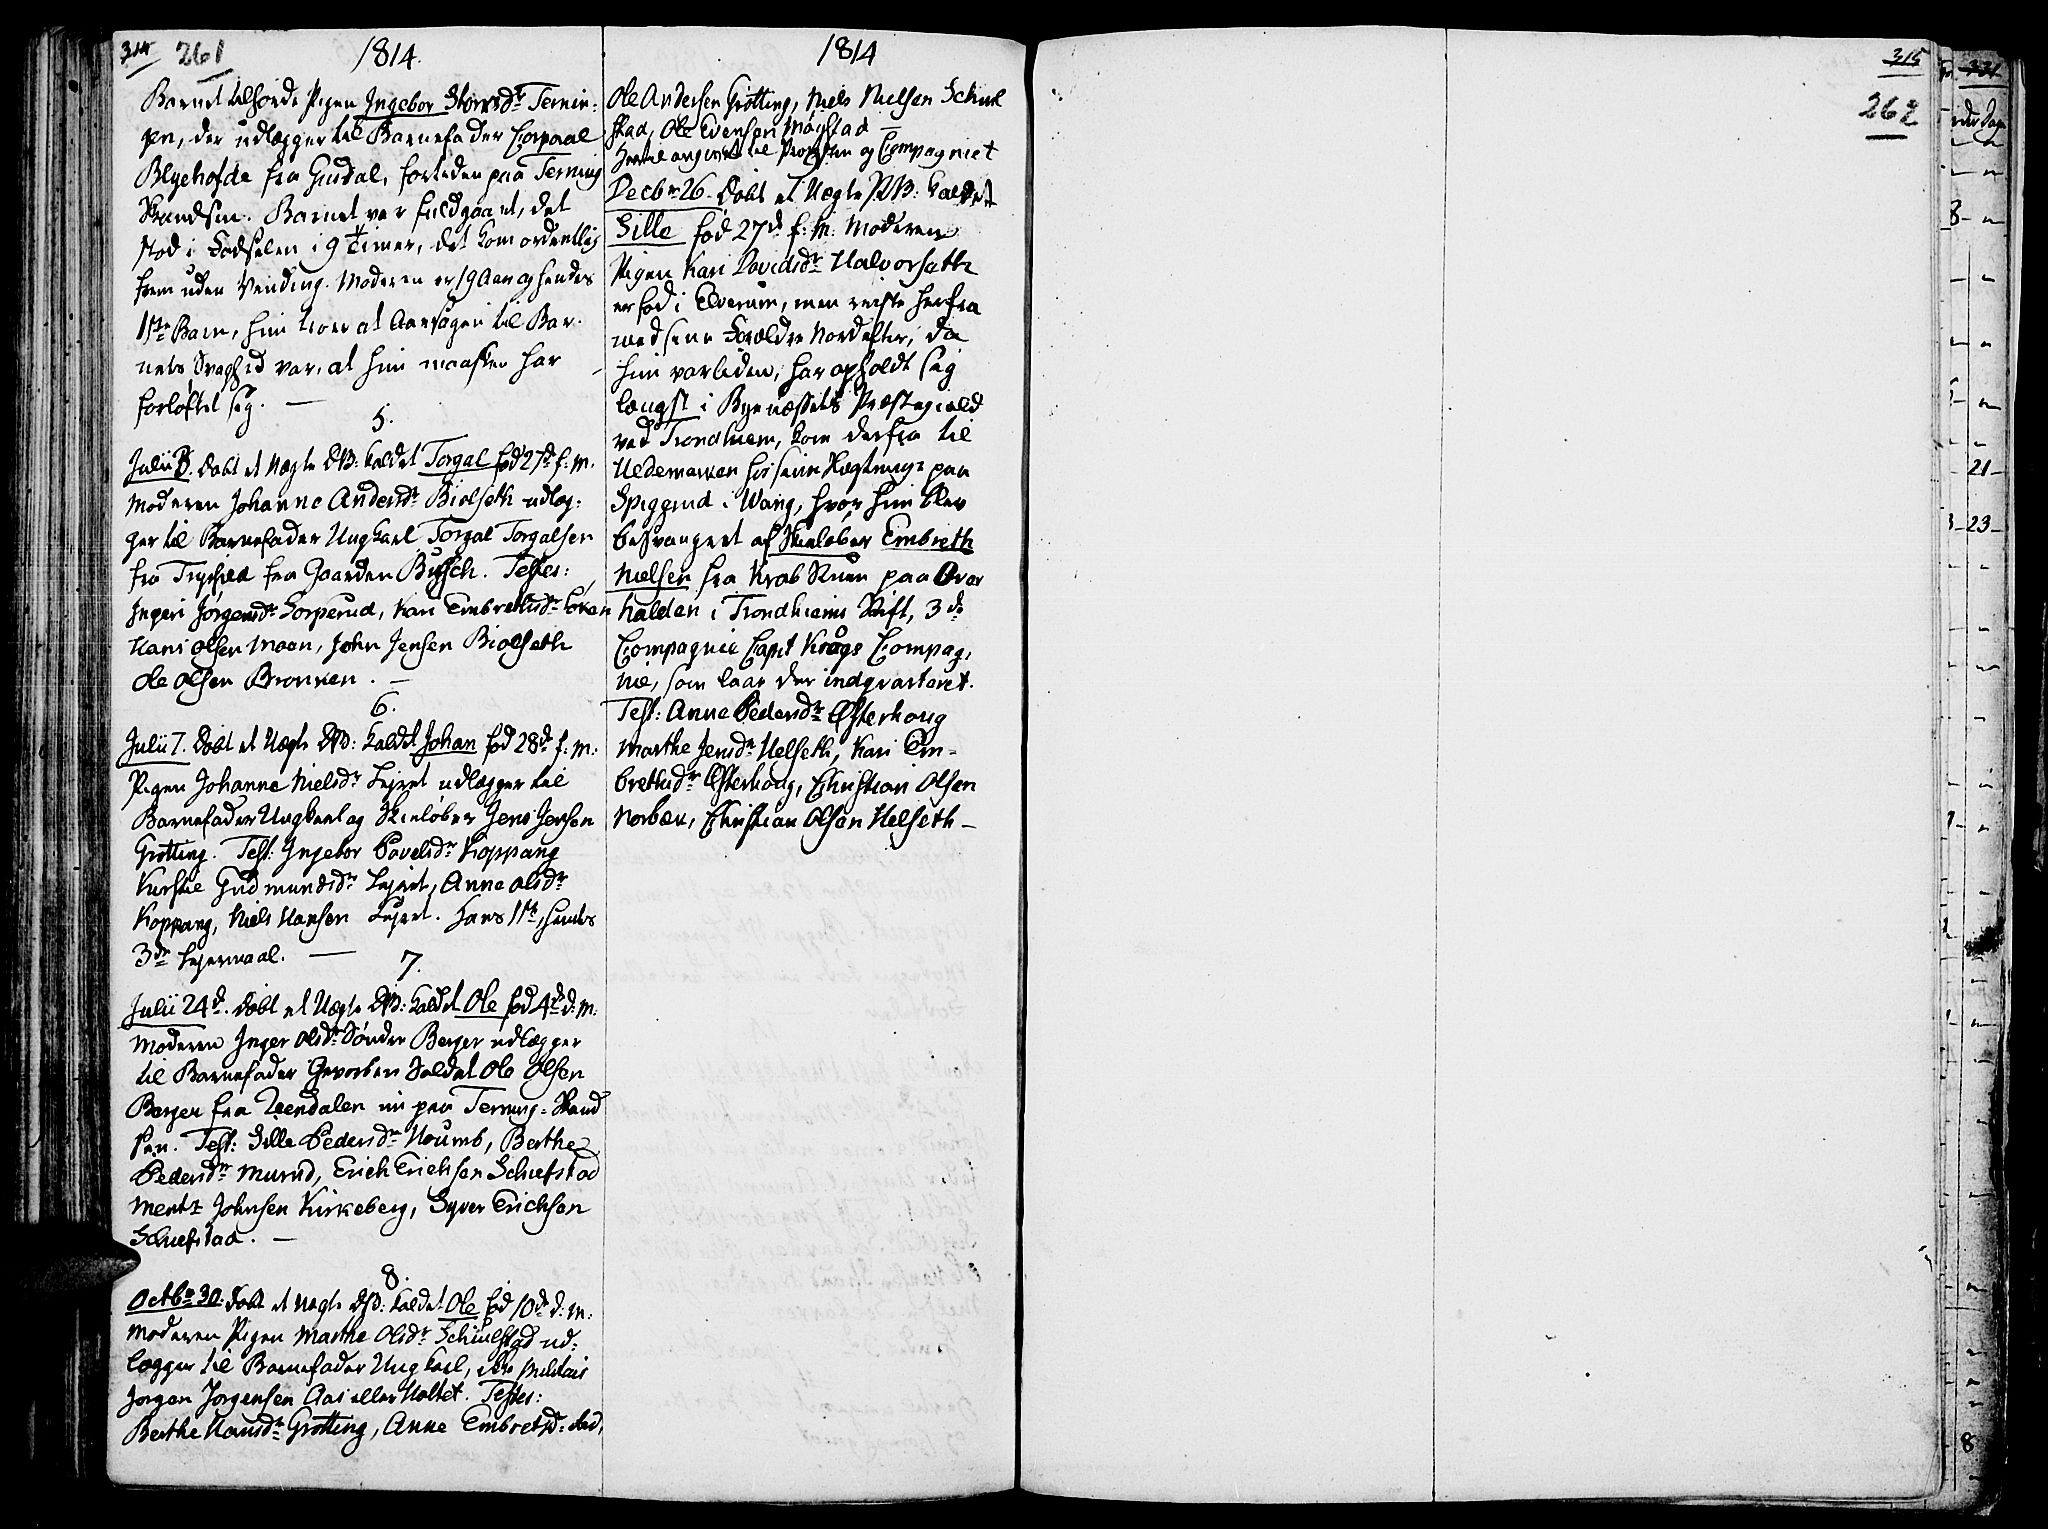 314 261
1814.
Barnet tilhørde Pigen Ingebor Størrsdr Ternin-
gen, der udlægger til Barnefader Corporal
Blyehofde fra Gusdal, forleden paa Terning
Skandsen. Barnet var fuldgaaet, det
stod i Fødselen i 9 Timer, det kom ordentlig
frem uden Vending. Moderen er 19 Aar og hendes
1ste Barn, hun troer at Aarsagen til Bar-
nets Svaghed var, at hun maaskee har
forløftet sig. —
5.
Julii 3. Døbt et Uægte DB: kaldet Torgal fød 27de f: M.
Moderen Johanne Andersdr Biølseth udlæg-
ger til Barnefader Ungkarl Torgal Torgalsen
fra Trysild fra Gaarden Büsch. Testes:
Ingeri Jørgensdr Sorperud, Kari Embretsdr Løken
Hans Olsen Moen, John Jensen Biølseth
Ole Olsen Brønnen. —
6.
Julii 7. Døbt et Uægte DB: kaldet Johan fød 28de f: M:
Pigen Johanne Nielsdr Lejret udlægger til
Barnefader Ungkarl og Skieløber Jens Jensen
Grøtting. Test: Ingebor Povelsdr Koppang
Kirstie Gudmundsdr Lejret, Anne Olsdr
Koppang, Niels Hansen Lejret. Hans 1ste, hendes
3die Lejermaal. —
7.
Julii 24de. Døbt et Uægte DB: kaldet Ole fød 4de d: M:
Moderen Inger Olsdr Søndre Berger udlægger
til Barnefader Gevorben Soldat Ole Olsen
Berger fra Reendalen nu paa Terning-Skand
sen. Test: Sille Pedersdr Noumb, Berthe
Pedersdr Murud, Erich Erichsen Schiefstad
Mentz Johnsen Kirkeberg, Syver Erichsen
Schiefstad. —
8.
Octbr 30. Døbt et Uægte DB: kaldet Ole fød 10de d: M:
Moderen Pigen Marthe Olsdr Schiulstad ud-
lægger til Barnefader Ungkarl, ikke Militair
Jørgen Jørgensen Aas eller Holtet. Testes:
Berthe Hansdr Grøtting, Anne Embretsd:
1814
Ole Andersen Grøtting, Niels Nielsen Schiul
stad, Ole Evensen Møystad —
Hertil angivet til Provsten og Compagniet
Decbr 26. Døbt et Uægte PB: kaldet
Sille fød 27de f: M: Moderen
Pigen Kari Davidsdr Halvorseth
er fød i Elverum, men reiste herfra
med sine Forældre Nordefter, da
hun var liden, har opholdt sig
længst i Byenæssets Præstegield
ved Trondhiem, kom derfra til
Hedemarken hos sine Slægtninge paa
Spiggerud i Wang, hvor hun blev
besvangret af Skieløber Embreth
Nielsen fra Krab Stuen paa Over
halden i Trondhiems Stift, 3de
Compagnie Capit Krags Compag-
nie, som laae der indqvarteret.
Test: Anne Pedersdr Østerhoug
Marthe Jensdr Helseth, Kari Em-
bretsdr Østerhoug, Christian Olsen
Norbæk, Christian Olsen Helseth —
315
262
331
8
21
23
8